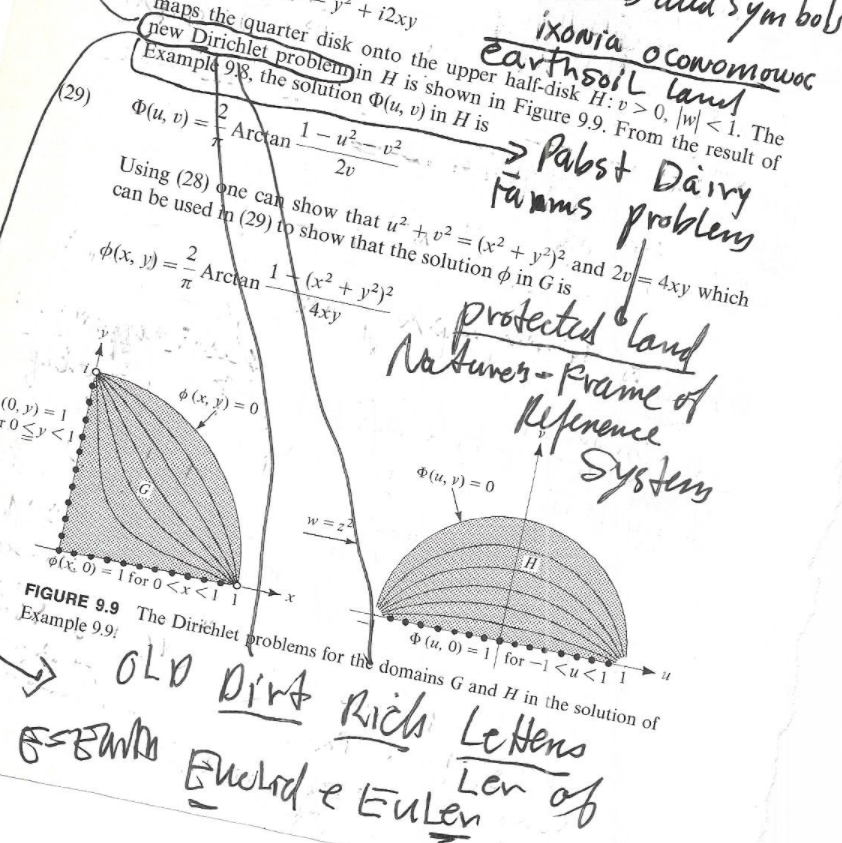 y² + i2xy
symbols
maps the quarter disk onto the upper half-disk H: v > 0, |w| < 1. The
new Dirichlet problem in H is shown in Figure 9.9. From the result of
Example 9.8, the solution Φ(u, v) in H is
ixonia oconomowoc
earthsoil land
(29) Φ(u, v) = 2/π Arctan (1 − u² − v²)/2v
Pabst Dairy
Farms problem
Using (28) one can show that u² + v² = (x² + y²)² and 2v = 4xy which
can be used in (29) to show that the solution ϕ in G is
ϕ(x, y) = 2/π Arctan (1 − (x² + y²)²)/4xy
protected land
Natures-Frame of
Reference
System
y
i
ϕ(x, y) = 0
(0, y) = 1
r 0 ≦ y < 1
G
ϕ(x, 0) = 1 for 0 < x < 1 1
x
w = z²
v
Φ(u, v) = 0
H
Φ (u, 0) = 1 for −1 < u < 1 1
u
FIGURE 9.9 The Dirichlet problems for the domains G and H in the solution of
Example 9.9.
OLD Dirt Rich Letters
E=Earth
Euclid e Euler
Ler of